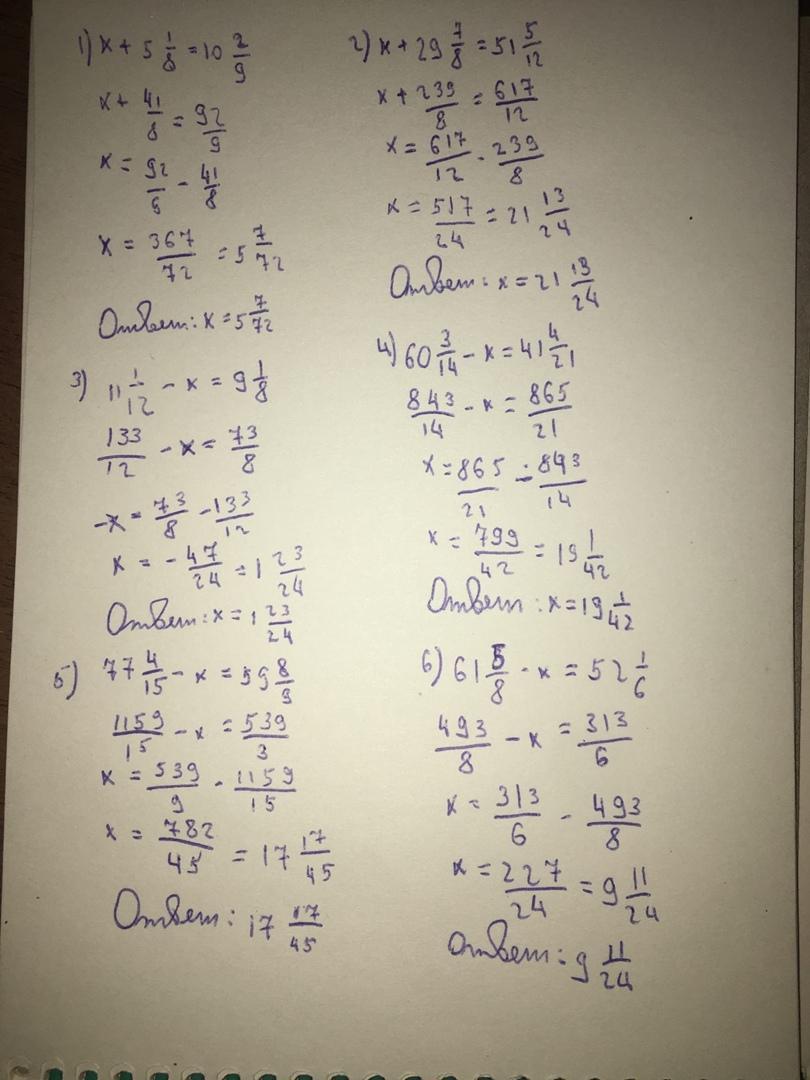 1) x + 5 1/8 = 10 2/9
x + 41/8 = 92/9
x = 92/9 - 41/8
x = 367/72 = 5 7/72
Ответ: x = 5 7/72
2) x + 29 7/8 = 51 5/12
x + 239/8 = 617/12
x = 617/12 - 239/8
x = 517/24 = 21 13/24
Ответ: x = 21 13/24
3) 11 1/12 - x = 9 1/8
133/12 - x = 73/8
-x = 73/8 - 133/12
x = - 47/24 = 1 23/24
Ответ: x = 1 23/24
4) 60 3/14 - x = 41 4/21
843/14 - x = 865/21
x = 865/21 - 843/14
x = 799/42 = 19 1/42
Ответ: x = 19 1/42
5) 77 4/15 - x = 59 8/9
1159/15 - x = 539/9
x = 539/9 - 1159/15
x = 782/45 = 17 17/45
Ответ: 17 17/45
6) 61 5/8 - x = 52 1/6
493/8 - x = 313/6
x = 313/6 - 493/8
x = 227/24 = 9 11/24
Ответ: 9 11/24